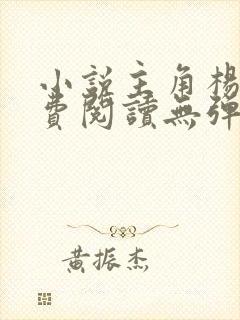 小說主角楊
費閱讀無彈
黃振杰